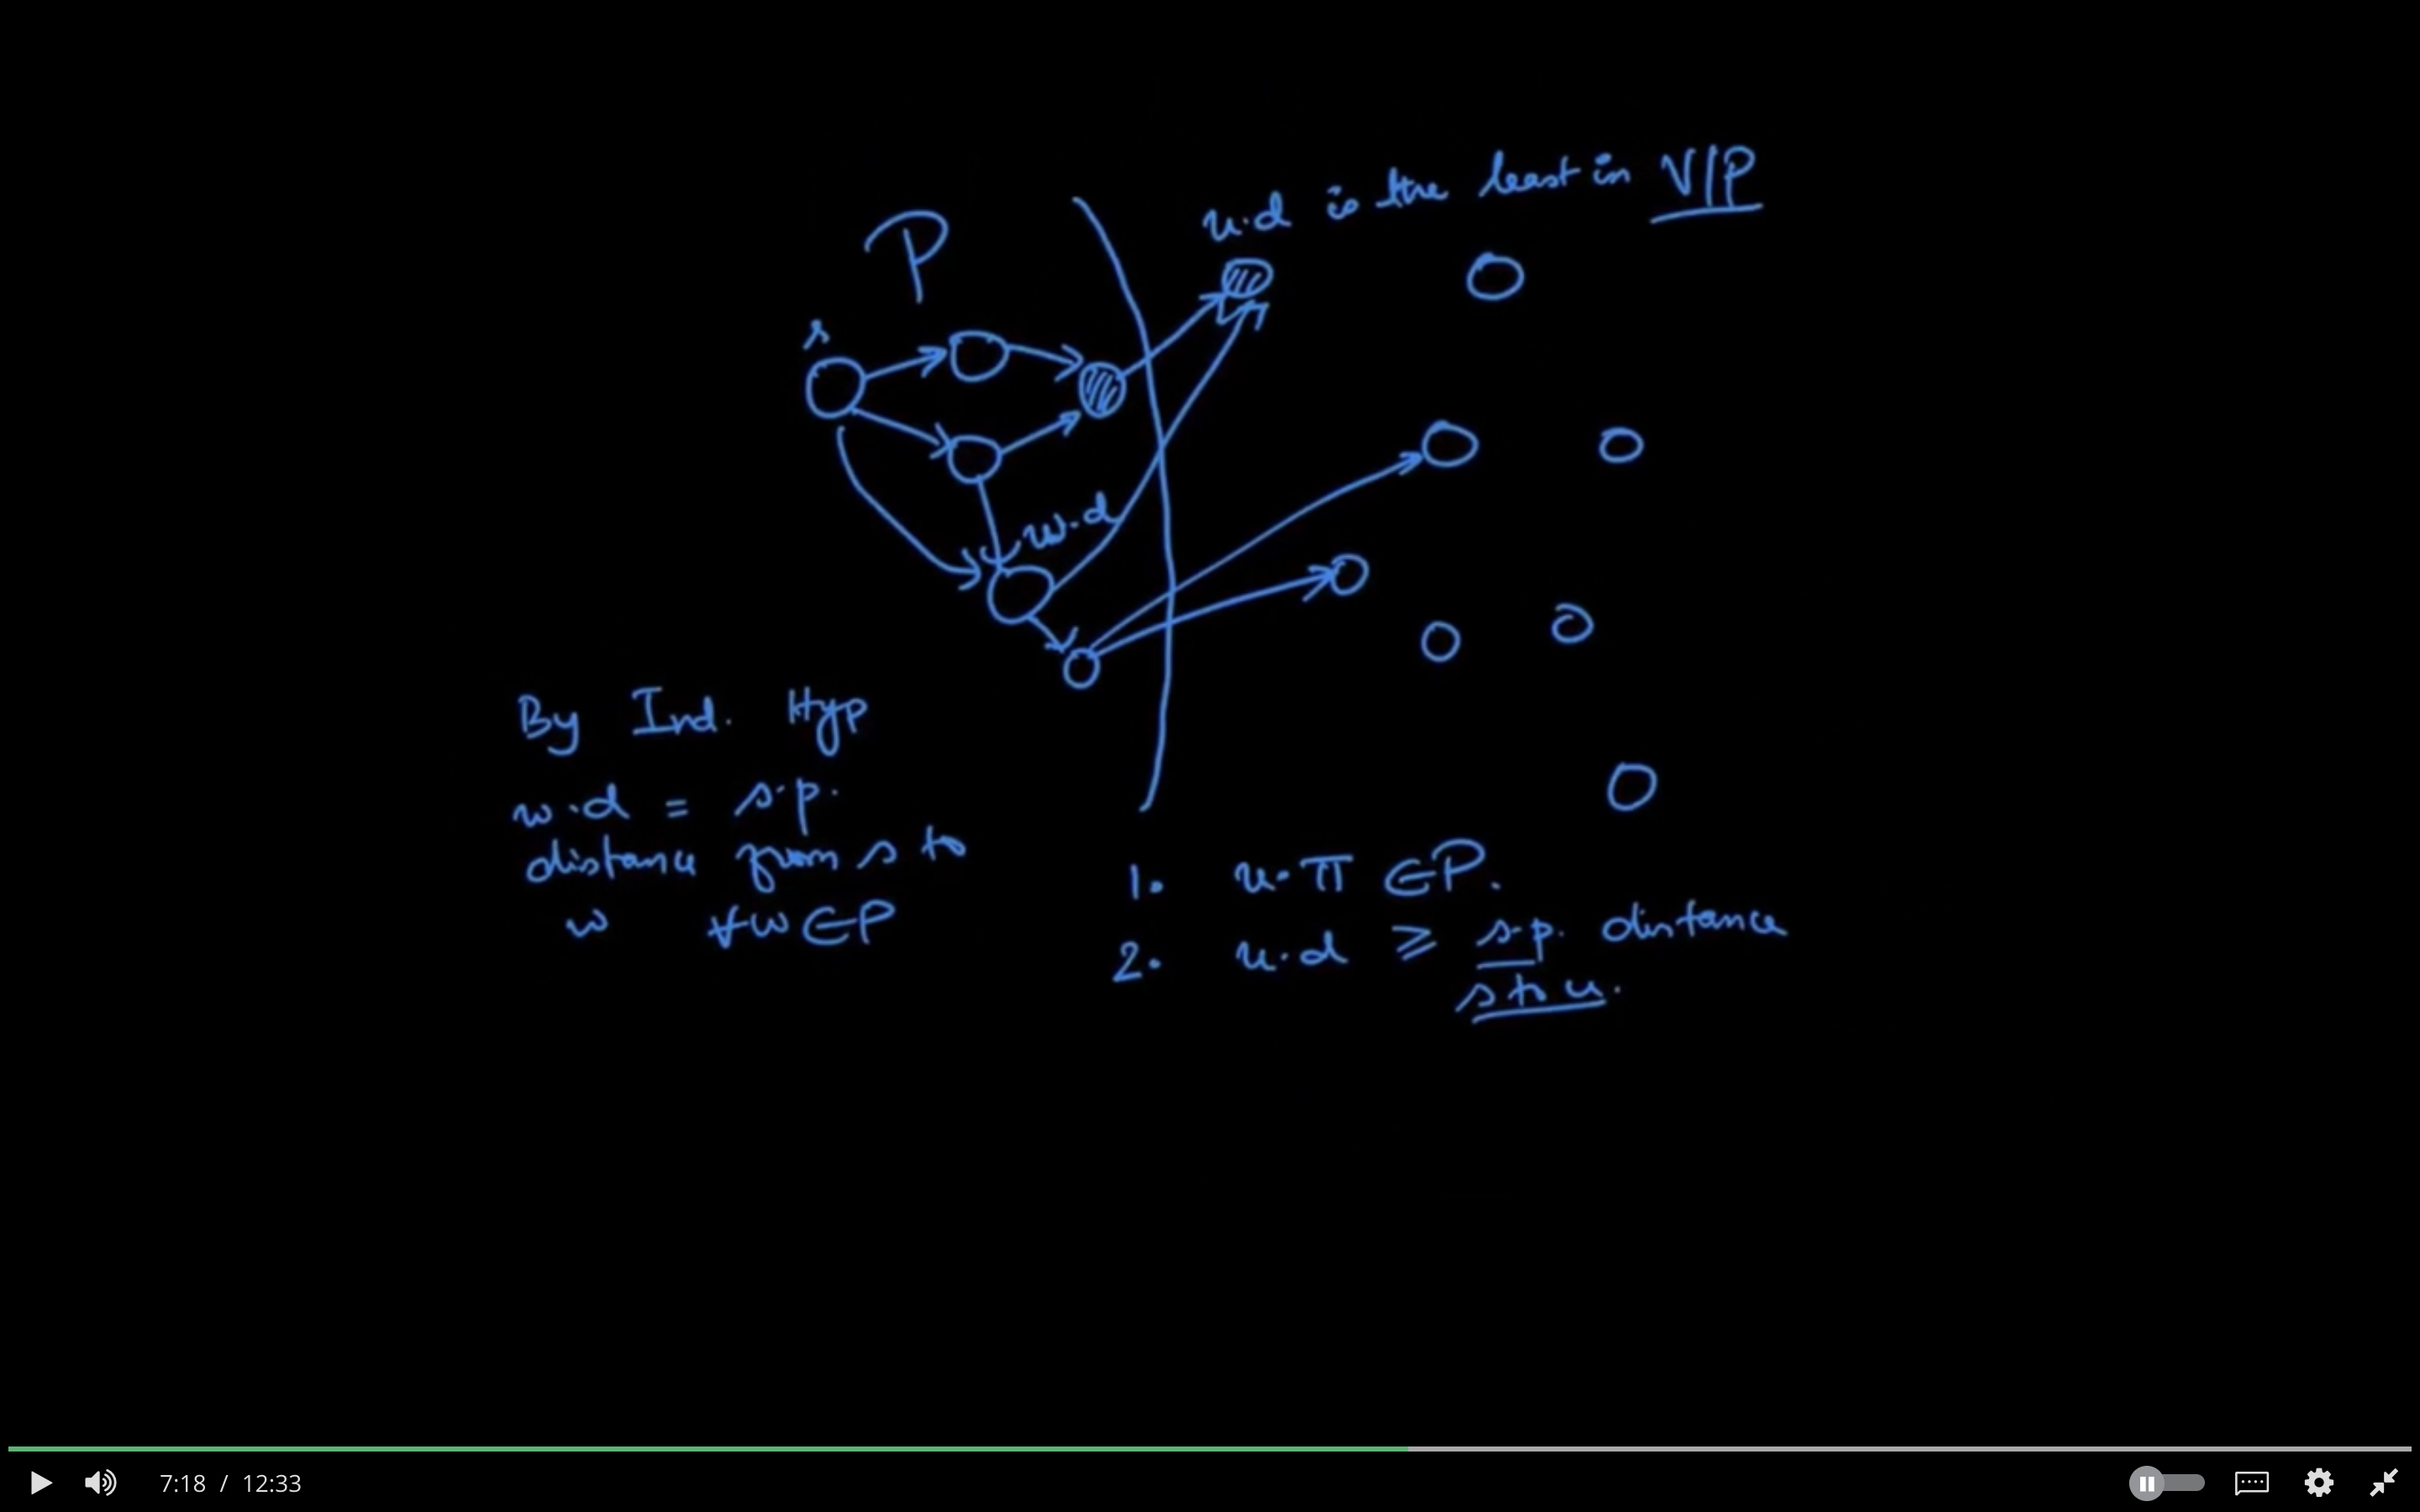 u.d is the least in V|P
P
s
w.d
By Ind. Hyp
w.d = s.p.
distance from s to
w ∀w∈P
1. u.π ∈P.
2. u.d ≥ s.p. distance
s to u.
7:18 / 12:33